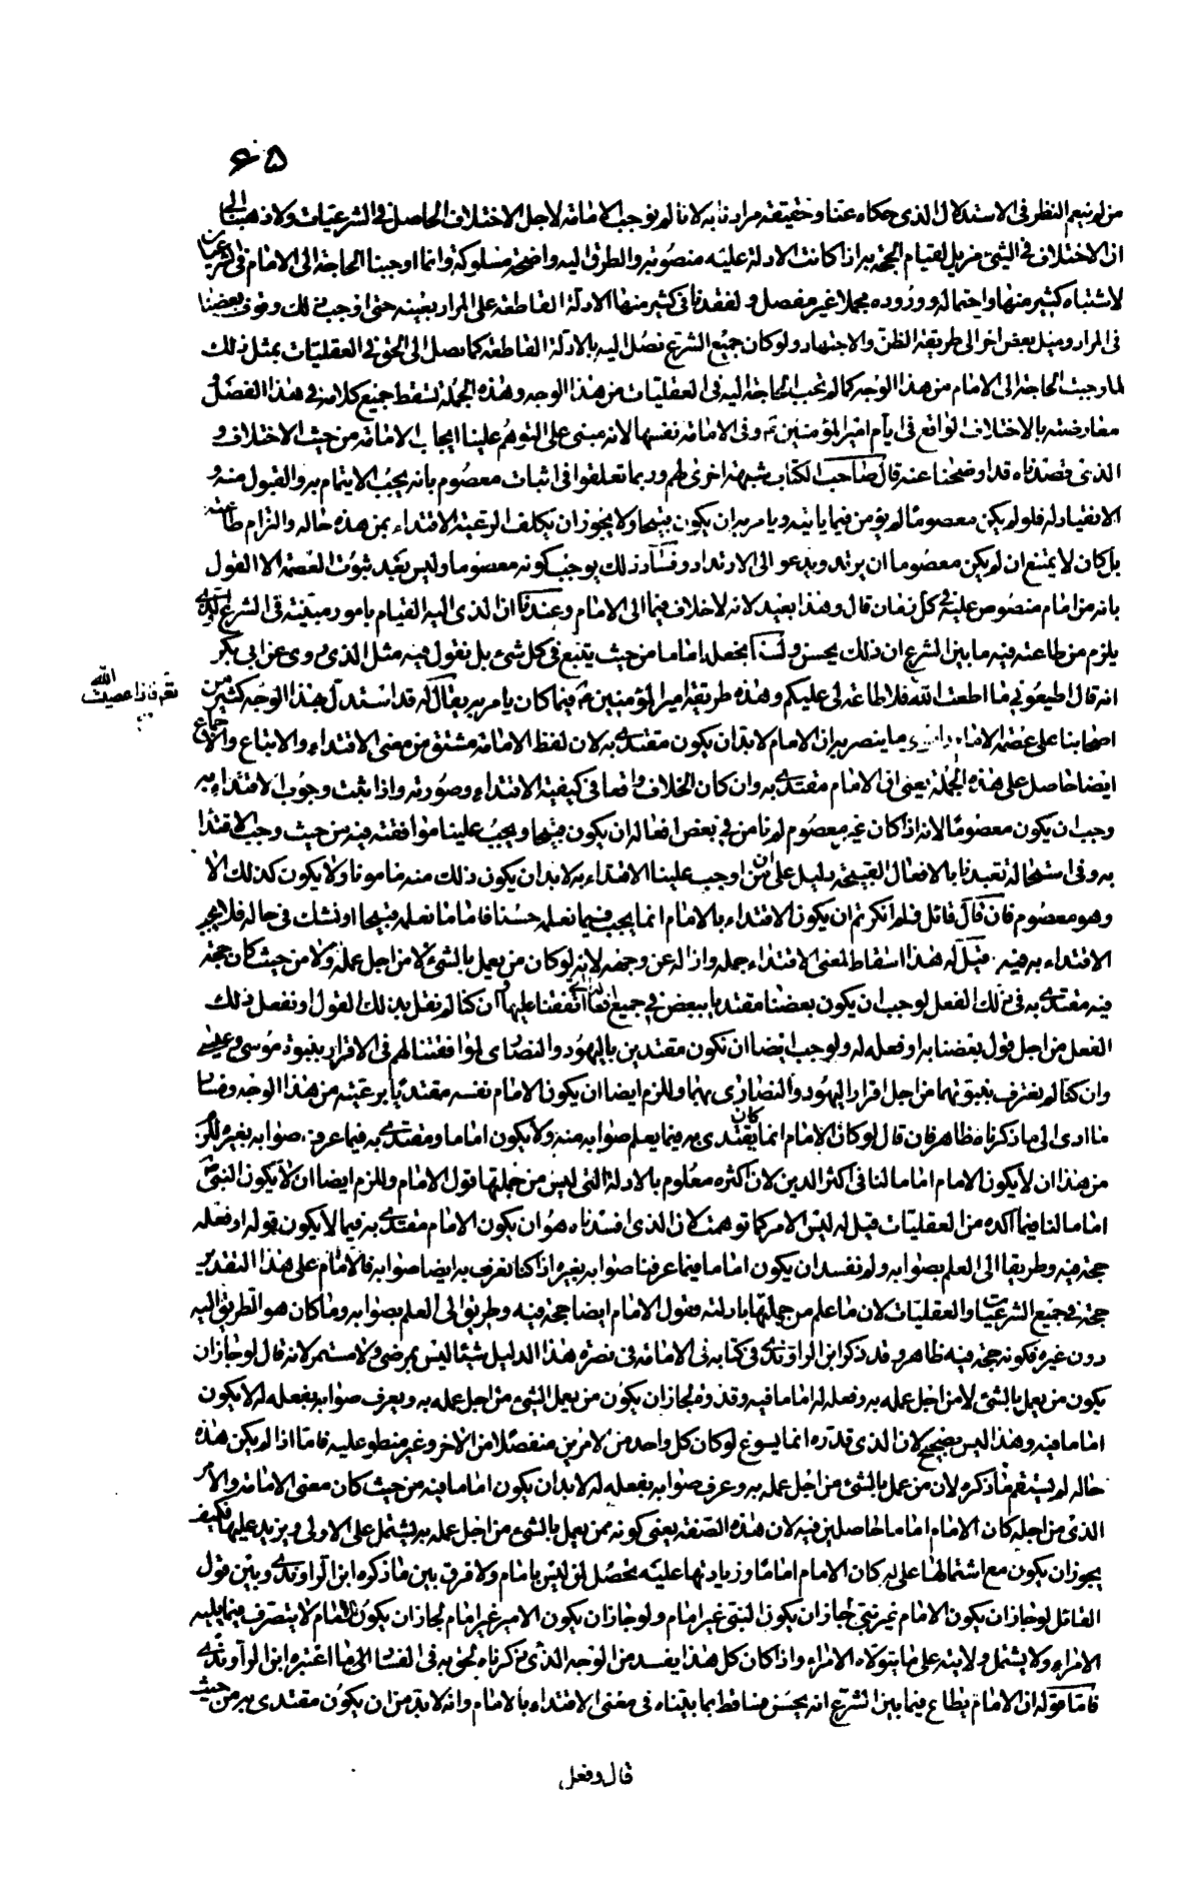 ٦٥
من لم ينعم النظر في الاستدلال الذي حكاه عنا وحقيقة مرادنا به لانا لم نوجب الامامة لاجل الاختلاف الحاصل في الشرعيات ولا ذهبنا الى
ان الاختلاف في الشيء مزيل لقيام الحجة به اذا كانت الادلة عليه منصوبة والطرق اليه واضحة مسلوكة وانما اوجبنا الحاجة الى الامام في الشرعيات
لاشتباه كثير منها واحتماله ووروده مجملا غير مفصل ولفقدنا في كثير منها الادلة القاطعة على المراد بعينه حتى اوجب ذلك وقوف بعضنا
في المراد وميل بعض اخر الى طريقة الظن والاجتهاد ولو كان جميع الشرع نصل اليه بالادلة القاطعة كما نصل الى الحق في العقليات بمثل ذلك
لما وجبت الحاجة الى الامام من هذا الوجه كما لم تجب الحاجة اليه في العقليات من هذا الوجه وهذه الجملة تسقط جميع كلامه في هذا الفصل و
معارضته بالاختلاف الواقع في ايام امير المؤمنين ع وفي الامامة نفسها لانه مبني على التوهم علينا ايجاب الامامة من حيث الاختلاف و
الذي قصدناه قد اوضحنا عنه قال صاحب الكتاب شبهة اخرى لهم وربما تعلقوا في اثبات معصوم بانه يجب الايتمام به والقبول منه و
الانقياد له فلو لم يكن معصوما لم يؤمن فيما ياتيه ويامر به ان يكون قبيحا ولا يجوز ان يكلف الرعية الاقتداء بمن هذه حاله والتزام طاعته
بل كان لا يمتنع ان لم يكن معصوما ان يرتد ويدعو الى الارتداد وفساد ذلك يوجب كونه معصوما وليس بعد ثبوت العصمة الا القول
بانه من امام منصوص عليه في كل زمان قال وهذا بعيد لانه لا خلاف فيما الى الامام وعندنا ان الذي اليه القيام بامور مبينة في الشرع
يلزم من طاعته فيه ما بين الشرع ان ذلك يحسن ولسنا نجعله اماما من حيث يتبع في كل شيء بل نقول فيه مثل الذي روى عن ابي بكر
انه قال اطيعوني ما اطعت الله فلا طاعة لي عليكم وهذه طريقة امير المؤمنين ع فيما كان يامر به يقال له قد استدل بهذا الوجه كثير من
نعم فاذا عصيت الله
اصحابنا على عصمة الامام ما ينصر به ان الامام لا بد ان يكون مقتدى به لان لفظ الامامة مشتق من معنى الاقتداء والاتباع والاجماع
ايضا حاصل على هذه الجملة يعني ان الامام مقتدى به وان كان الخلاف واقعا في كيفية الاقتداء وصورته واذا ثبت وجوب الاقتداء به
وجب ان يكون معصوما لانه اذا كان غير معصوم لم نامن في بعض افعاله ان يكون قبيحا ويجب علينا موافقته فيه من حيث وجب الاقتداء
به وفي استحالة تعبدنا بالافعال القبيحة دليل على ان من اوجب علينا الاقتداء به لا بد ان يكون ذلك منه مامونا ولا يكون كذلك الا
وهو معصوم فان قال قائل فلم انكرتم ان يكون الاقتداء بالامام انما يجب فيما نعلمه حسنا فاما ما نعلمه قبيحا او نشك في حاله فلا يجب
الاقتداء به فيه قيل له هذا اسقاط لمعنى الاقتداء جملة وازالة عن وجهه لانه لو كان من يعمل بالشيء لا من اجل عمله ولا من حيث كان حجة
فيه مقتدى به في ذلك الفعل لوجب ان يكون بعضنا مقتديا ببعض في جميع افعاله التي اتفقنا عليها وان كنا لم نقل بذلك القول او نفعل ذلك
الفعل من اجل قول بعضنا به او فعله له ولوجب ايضا ان نكون مقتدين باليهود والنصارى لموافقتنا لهم في الاقرار بنبوة موسى وعيسى
وان كنا لم نعترف بنبوتهما من اجل اقرار اليهود والنصارى بهما وللزم ايضا ان يكون الامام نفسه مقتديا برعيته من هذا الوجه وفساد
ما ادى الى ما ذكرناه ظاهر فان قال لو كان الامام انما كان يقتدى به فيما يعلم صوابه منه ولا يكون اماما ومقتدى به فيما عرف صوابه بغيره للزم
من هذا ان لا يكون الامام اماما لنا في اكثر الدين لان اكثره معلوم بالادلة التي ليس من جملتها قول الامام وللزم ايضا ان لا يكون النبي ص
اماما لنا فيما اكده من العقليات قيل له ليس الامر كما توهمت لان الذي افسدناه هو ان يكون الامام مقتدى به فيما لا يكون قوله او فعله
حجة فيه وطريقا الى العلم بصوابه ولم نفسد ان يكون اماما فيما عرفنا صوابه بغيره اذا كنا نعرف به ايضا صوابه فالامام على هذا التقدير
حجة في جميع الشرعيات والعقليات لان ما علم من جملتها بادلته فقول الامام ايضا حجة فيه وطريق الى العلم بصوابه وما كان هو الطريق اليه
دون غيره فكونه حجة فيه ظاهر وقد ذكر ابن الراوندي في كتابه في الامامة في نصرة هذا الدليل شيئا ليس بمرضى ولا مستمر لانه قال لو جاز ان
يكون من يعمل بالشيء لا من اجل عمله به وفعله له اماما فيه وقدوة لجاز ان يكون من يعمل الشيء من اجل عمله به ويعرف صوابه بفعله له لا يكون
اماما فيه وهذا ليس بصحيح لان الذي قدره انما يسوغ لو كان كل واحد من الامرين منفصلا من الاخر وغير منطو عليه فاما اذا لم يكن هذه
حاله لم يستقم ما ذكره لان من عمل بالشيء من اجل عمله به وعرف صوابه بفعله له لا بد ان يكون اماما فيه من حيث كان معنى الامامة والامر
الذي من اجله كان الامام اماما حاصلين فيه لان هذه الصفة يعني كونه ممن يعمل بالشيء من اجل عمله به يشتمل على الاولى ويزيد عليها فكيف
يجوز ان يكون مع اشتمالها على ما به كان الامام اماما وزيادتها عليه تحصل لمن ليس بامام ولا فرق بين ما ذكره ابن الراوندي وبين قول
القائل لو جاز ان يكون الامام غير نبي لجاز ان يكون النبي غير امام ولو جاز ان يكون الامير غير امام لجاز ان يكون الامام لا يتصرف فيما يليه
الامراء ولا يشتمل ولايته على ما يتولاه الامراء واذا كان كل هذا يفسد من الوجه الذي ذكرناه لحق به في الفساد ما اعتبره ابن الراوندي
فاما قوله ان الامام يطاع فيما بين الشرع انه يحسن مناقضا بما بيناه في معنى الاقتداء بالامام وانه لا بد من ان يكون مقتدى به من حيث
قال وفعل